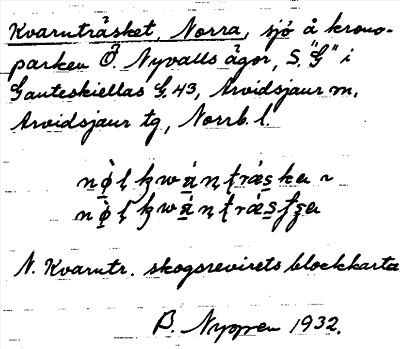 Kvarnträsket, Norra, sjö å krono-
parken Ö. Nyvalls ägor, S. "G" i
Gauteskiellas G. 43, Arvidsjaur m.
Arvidsjaur tg, Norrb. l.
N. Kvarntr. skogsrevirets blockkarta
B. Nyppen 1932.